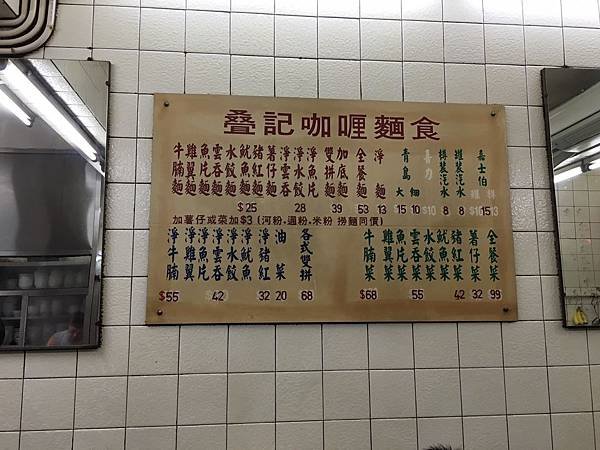 叠記咖喱麵食
牛腩麵 雞翼麵 魚片麵 雲吞麵 水餃麵 魷魚麵 豬紅麵 薯仔麵 淨雲吞 淨水餃 淨魚片 雙拼麵 加底麵 全餐麵 淨麵 青島 大 細 喜力 樽裝汽水 罐裝汽水 嘉士伯 罐 樽
$25 28 39 53 13 $15 10 $10 8 8 $15 13
加薯仔或菜加$3 (河粉.過粉.米粉 撈麵同價)
淨牛腩 淨雞翼 淨魚片 淨雲吞 淨水餃 淨魷魚 淨豬紅 油菜 各式雙拼 牛腩菜 雞翼菜 魚片菜 雲吞菜 水餃菜 魷魚菜 豬紅菜 薯仔菜 全餐菜
$55 42 32 20 68 $68 55 42 32 99